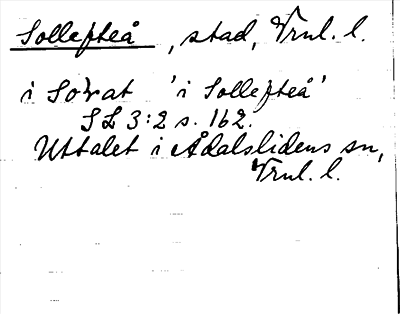 Sollefteå, stad, Vrnl. l.
i Sovat 'i Sollefteå'
SL 3:2 s. 162.
Uttalet i Ådalslidens sn,
Vrnl. l.